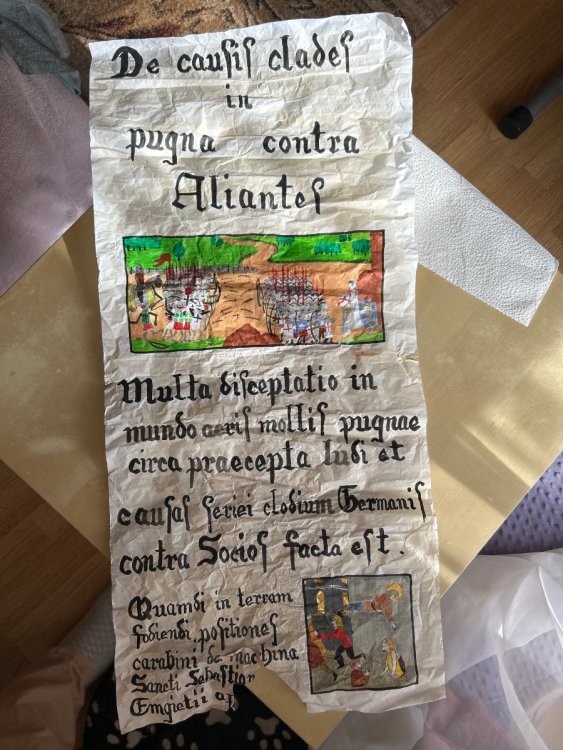 De causis clades
in
pugna contra
Aliantes
Multa disceptatio in
mundo aeris mollis pugnae
circa praecepta ludi et
causas seriei clodium Germanis
contra Socios facta est.
Quamdi in terram
fodiendi, positiones
carabini de machina
Sancti Sebastian
Emgietii